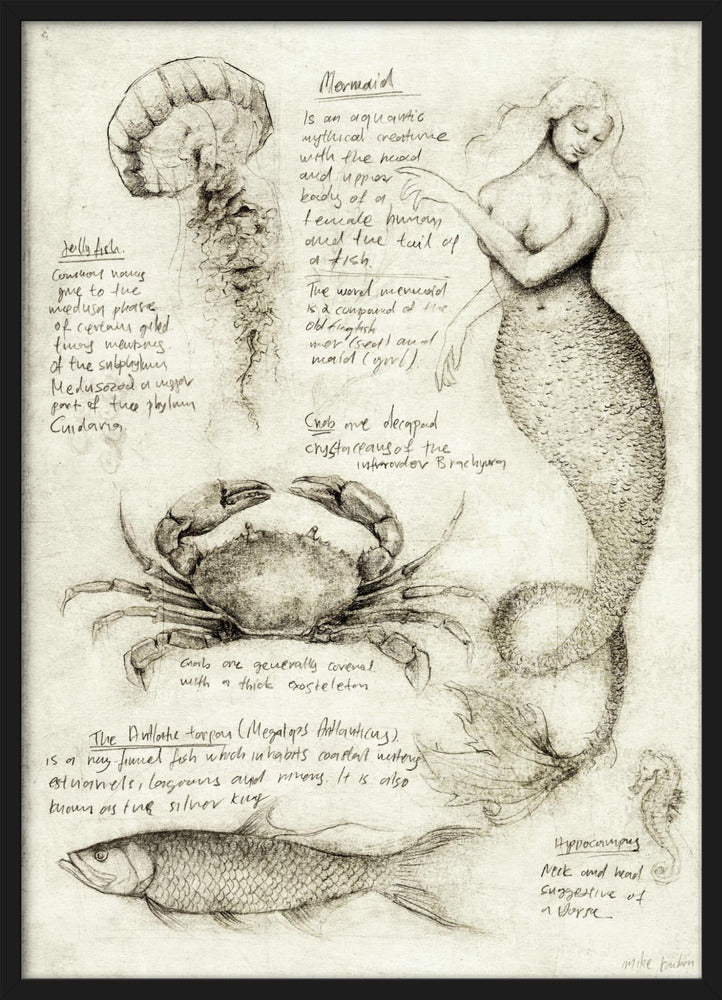 Mermaid
Is an aquatic
mythical creature
with the head
and upper
body of a
female human
and the tail of
a fish.
The word mermaid
is a compound of the
old English
mer (sea) and
maid (girl)
Jelly fish.
Common name
give to the
medusa phase
of certain
of the subphylum
Medusozoa a major
part of the phylum
Cnidaria.
Crab are decapod
crystaceans of the
infraorder Brachyura
Crab are generally covered
with a thick exosteleton
The Antlatic tarpon (Megalops Athlanticus)
is a ray finned fish which inhabits coastal waters
estuaries, lagoons and rivers. It is also
known as the silver king
Hippocampus
Neck and head
suggestive of
a Horse
mike